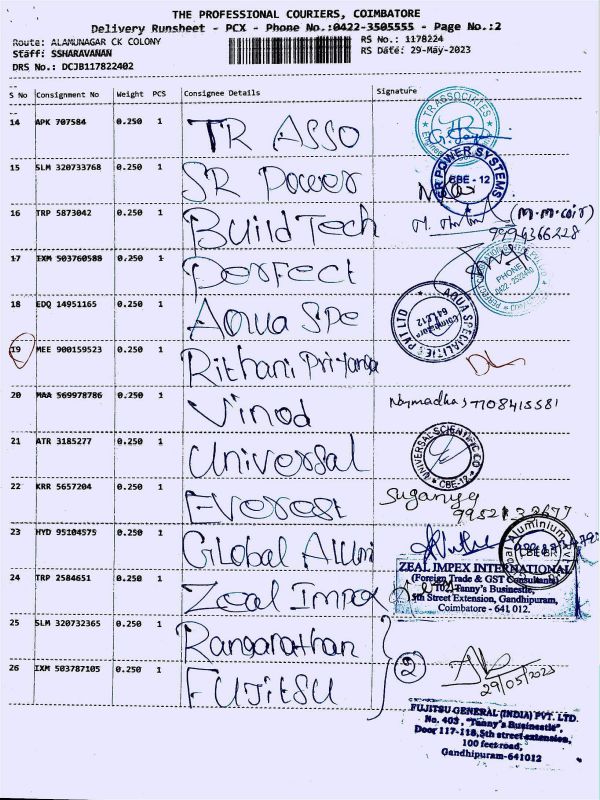 THE PROFESSIONAL COURIERS, COIMBATORE
Delivery Runsheet - PCX - Phone No.:0422-3505555 - Page No.:2
Route: ALAMUNAGAR CK COLONY
RS No.: 1178224
Staff: SSHARAVANAN
RS Date: 29-May-2023
DRS No.: DCJB117822402
S No Consignment No Weight PCS Consignee Details Signature
14 APK 707584 0.250 1 TR ASSO
TR ASSOCIATES
15 SLM 320733768 0.250 1 SR Power
SR POWER SYSTEMS
CBE - 12
16 TRP 5873042 0.250 1 Build Tech
(M.M.COIT)
9994366228
17 IXM 503760588 0.250 1 Perfect
PHONE
0422-
18 EDQ 14951165 0.250 1 Aqua Spe
AQUA SPECIALITIES PVT LTD
Coimbatore
641 012
19 MEE 900159523 0.250 1 Rithani Priyanga
20 MAA 569978786 0.250 1 Vinod
7708415581
21 ATR 3185277 0.250 1 Universal
UNIVERSAL SCIENTIFIC CO
CBE-12
22 KRR 5657204 0.250 1 Everest
Suganya
9952132677
23 HYD 95104575 0.250 1 Global Alumi
Global Aluminium Pvt
24 TRP 2584651 0.250 1 Zeal Impex
ZEAL IMPEX INTERNATIONAL
(Foreign Trade & GST Consultants)
102, Tanny's Businestle,
5th Street Extension, Gandhipuram,
Coimbatore - 641 012.
25 SLM 320732365 0.250 1 Ranganathan
2
29/05/2023
26 IXM 503787105 0.250 1 Fujitsu
FUJITSU GENERAL (INDIA) PVT. LTD.
No. 403 , "Tanny's Businestle",
Door 117-118, 5th street extension,
100 feet road,
Gandhipuram-641012